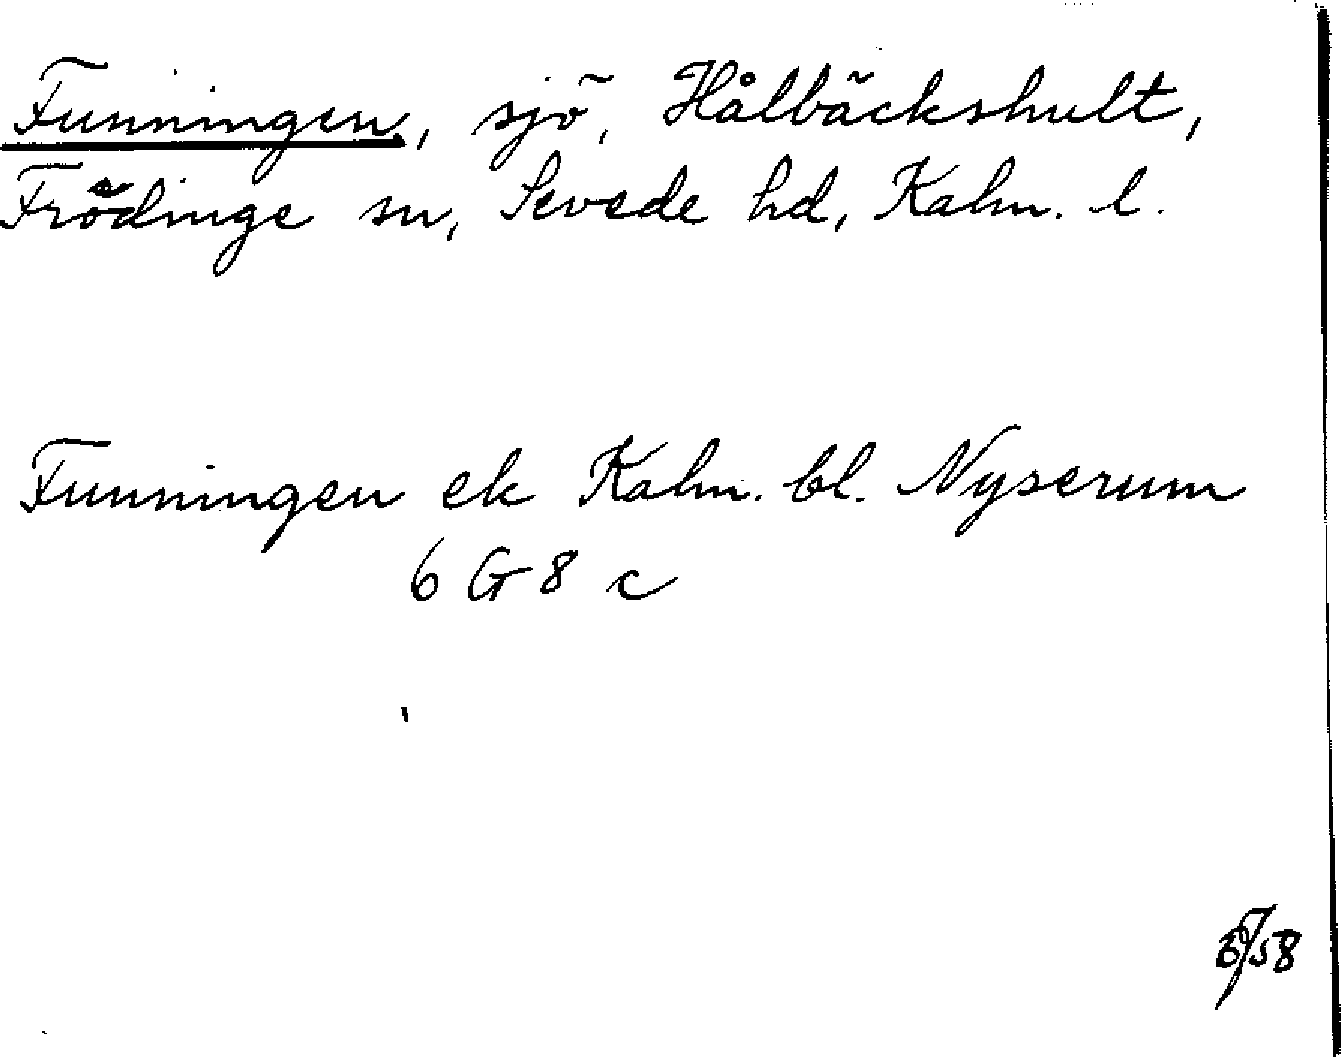 Funningen, sjö, Hålbäckshult,
Frödinge sn, Sevede hd, Kalm. l.
Funningen ek Kalm. bl. Nyserum
6 G 8 c